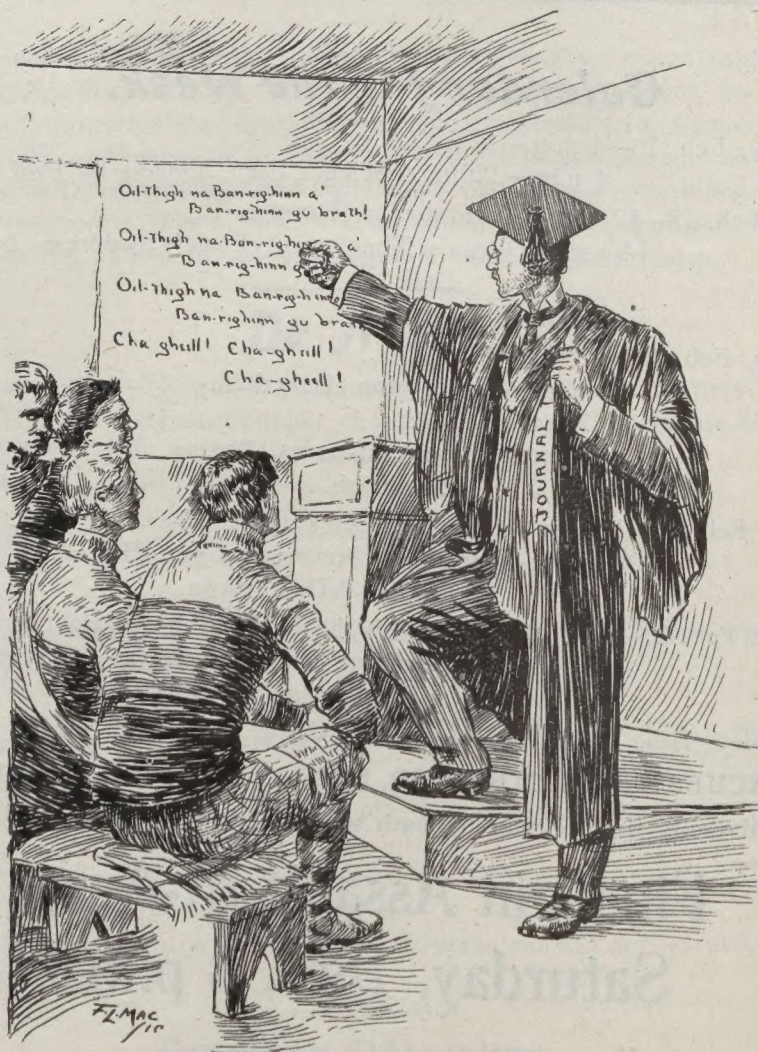 Oil-Thigh na Ban-rig-hinn a'
Ban-rig-hinn gu brath!
Oil-Thigh na-Ban-rig-hinn a'
Ban-rig-hinn g
Oil-Thigh na Ban-rig-hinn
Ban-righinn gu brath
Cha gheill! Cha-gheill!
Cha-gheill!
JOURNAL
F.L.MAC
/10
Saturday,